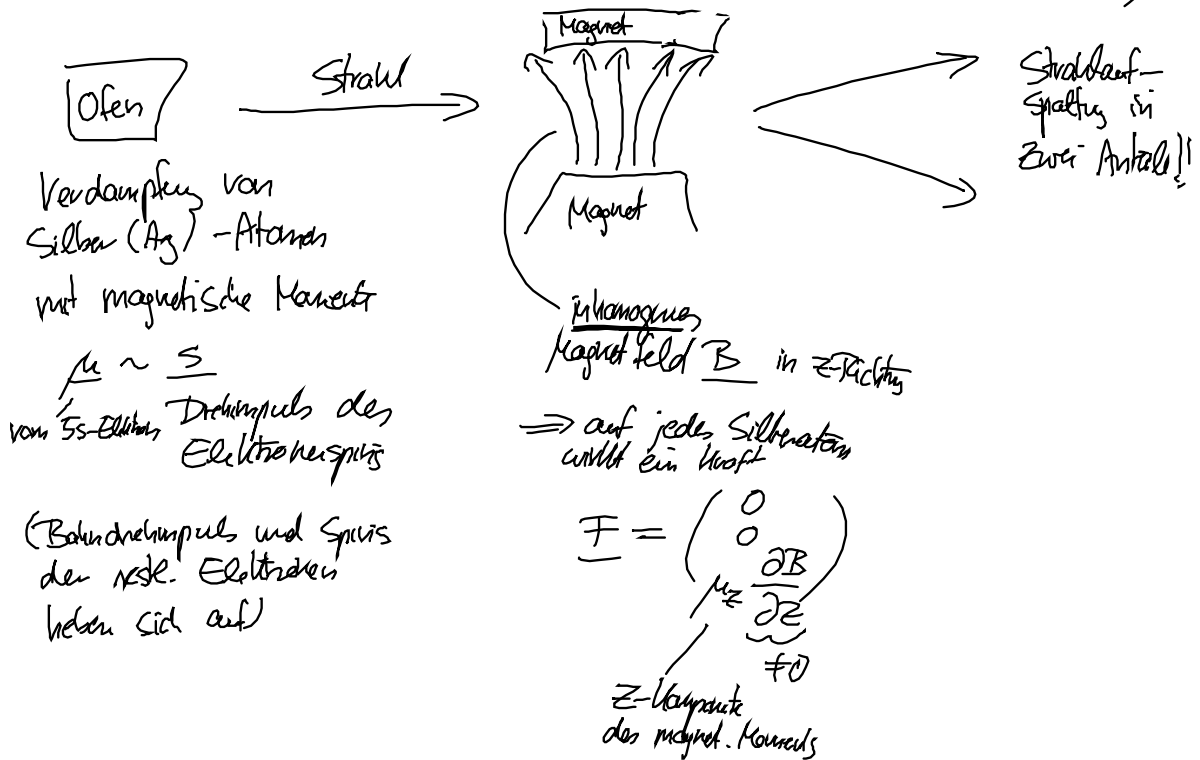 Ofen
Strahl
Magnet
Magnet
Strahlauf-
spaltung in
zwei Anteile!!
Verdampfung von
Silber (Ag) -Atomen
mit magnetische Momente
μ ~ S
vom 5s-Elektron Drehimpuls des
Elektronenspins
(Bahndrehimpuls und Spins
der restl. Elektronen
heben sich auf)
inhomogenes
Magnetfeld B in z-Richtung
⇒ auf jedes Silberatom
wirkt ein Kraft
F = ( 0
0
μz ∂B/∂z )
≠0
z-Komponente
des magnet. Moments